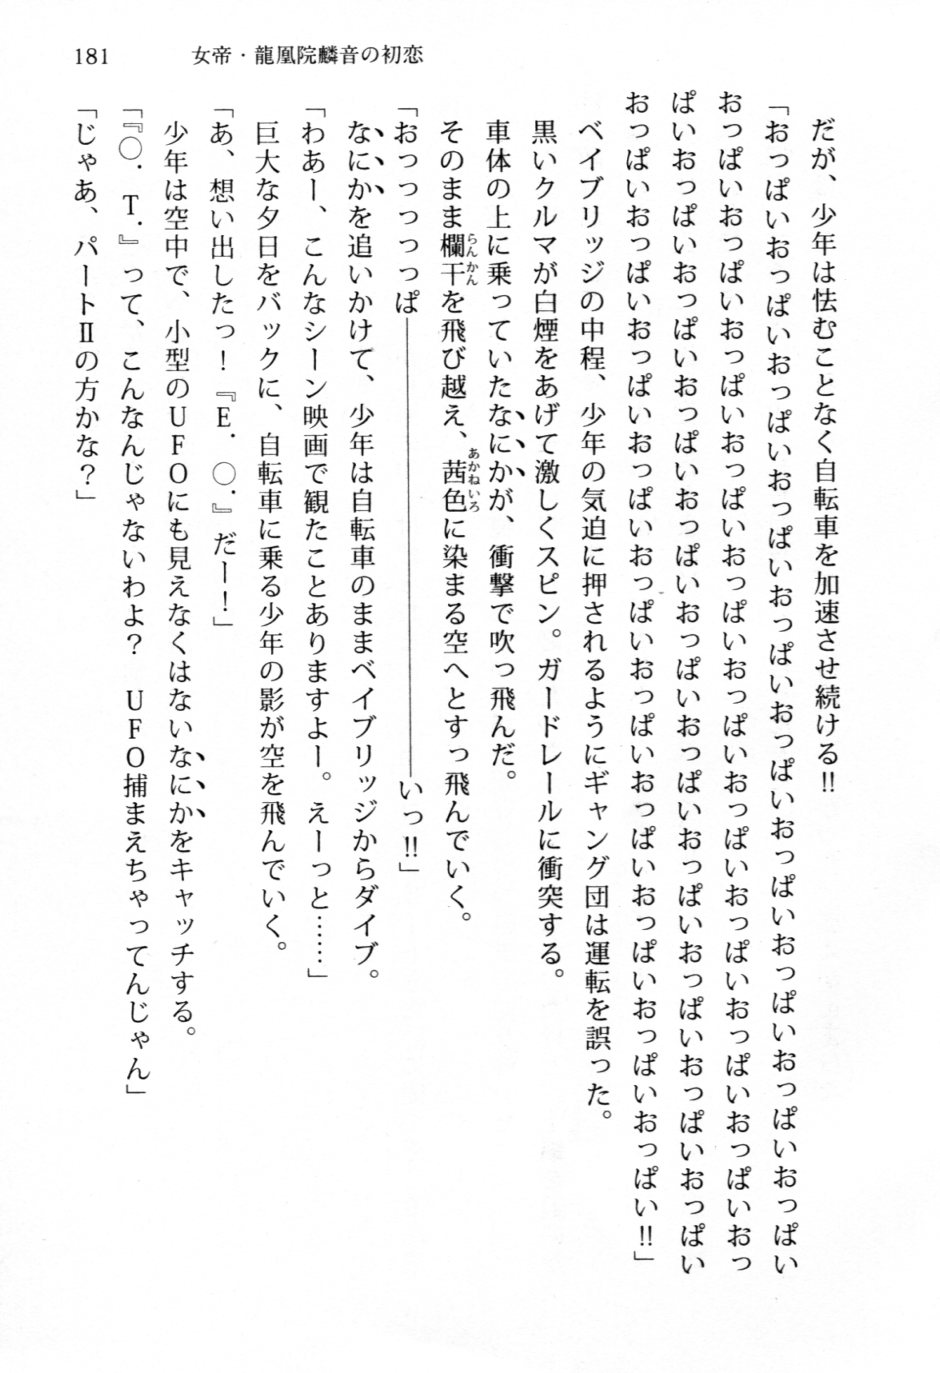 181
女帝・龍凰院麟音の初恋
だが、少年は怯むことなく自転車を加速させ続ける!!
「おっぱいおっぱいおっぱいおっぱいおっぱいおっぱいおっぱいおっぱいおっぱいおっぱい
おっぱいおっぱいおっぱいおっぱいおっぱいおっぱいおっぱいおっぱいおっぱいおっぱいおっ
ぱいおっぱいおっぱいおっぱいおっぱいおっぱいおっぱいおっぱいおっぱいおっぱいおっぱい
おっぱいおっぱいおっぱいおっぱいおっぱいおっぱいおっぱいおっぱいおっぱいおっぱい!!」
ベイブリッジの中程、少年の気迫に押されるようにギャング団は運転を誤った。
黒いクルマが白煙をあげて激しくスピン。ガードレールに衝突する。
車体の上に乗っていたなにかが、衝撃で吹っ飛んだ。
そのまま欄干を飛び越え、茜色に染まる空へとすっ飛んでいく。
「おっっっっぱ――――――――――――――――いっ!!」
なにかを追いかけて、少年は自転車のままベイブリッジからダイブ。
「わあー、こんなシーン映画で観たことありますよー。えーっと……」
巨大な夕日をバックに、自転車に乗る少年の影が空を飛んでいく。
「あ、想い出したっ！『E．○．』だー！」
少年は空中で、小型のUFOにも見えなくはないなにかをキャッチする。
「『○．T．』って、こんなんじゃないわよ？　UFO捕まえちゃってんじゃん」
「じゃあ、パートⅡの方かな？」